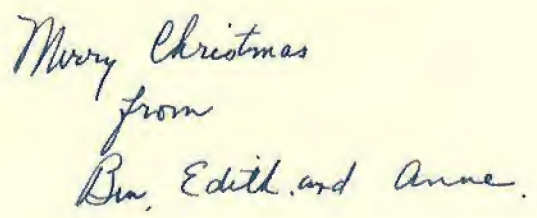 Merry Christmas
from
Ben, Edith and Anne.